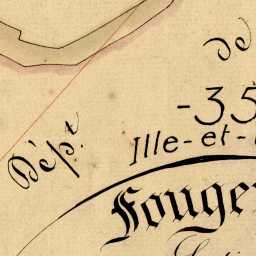 de
-35
Dépt
Ille-et-
Fouger